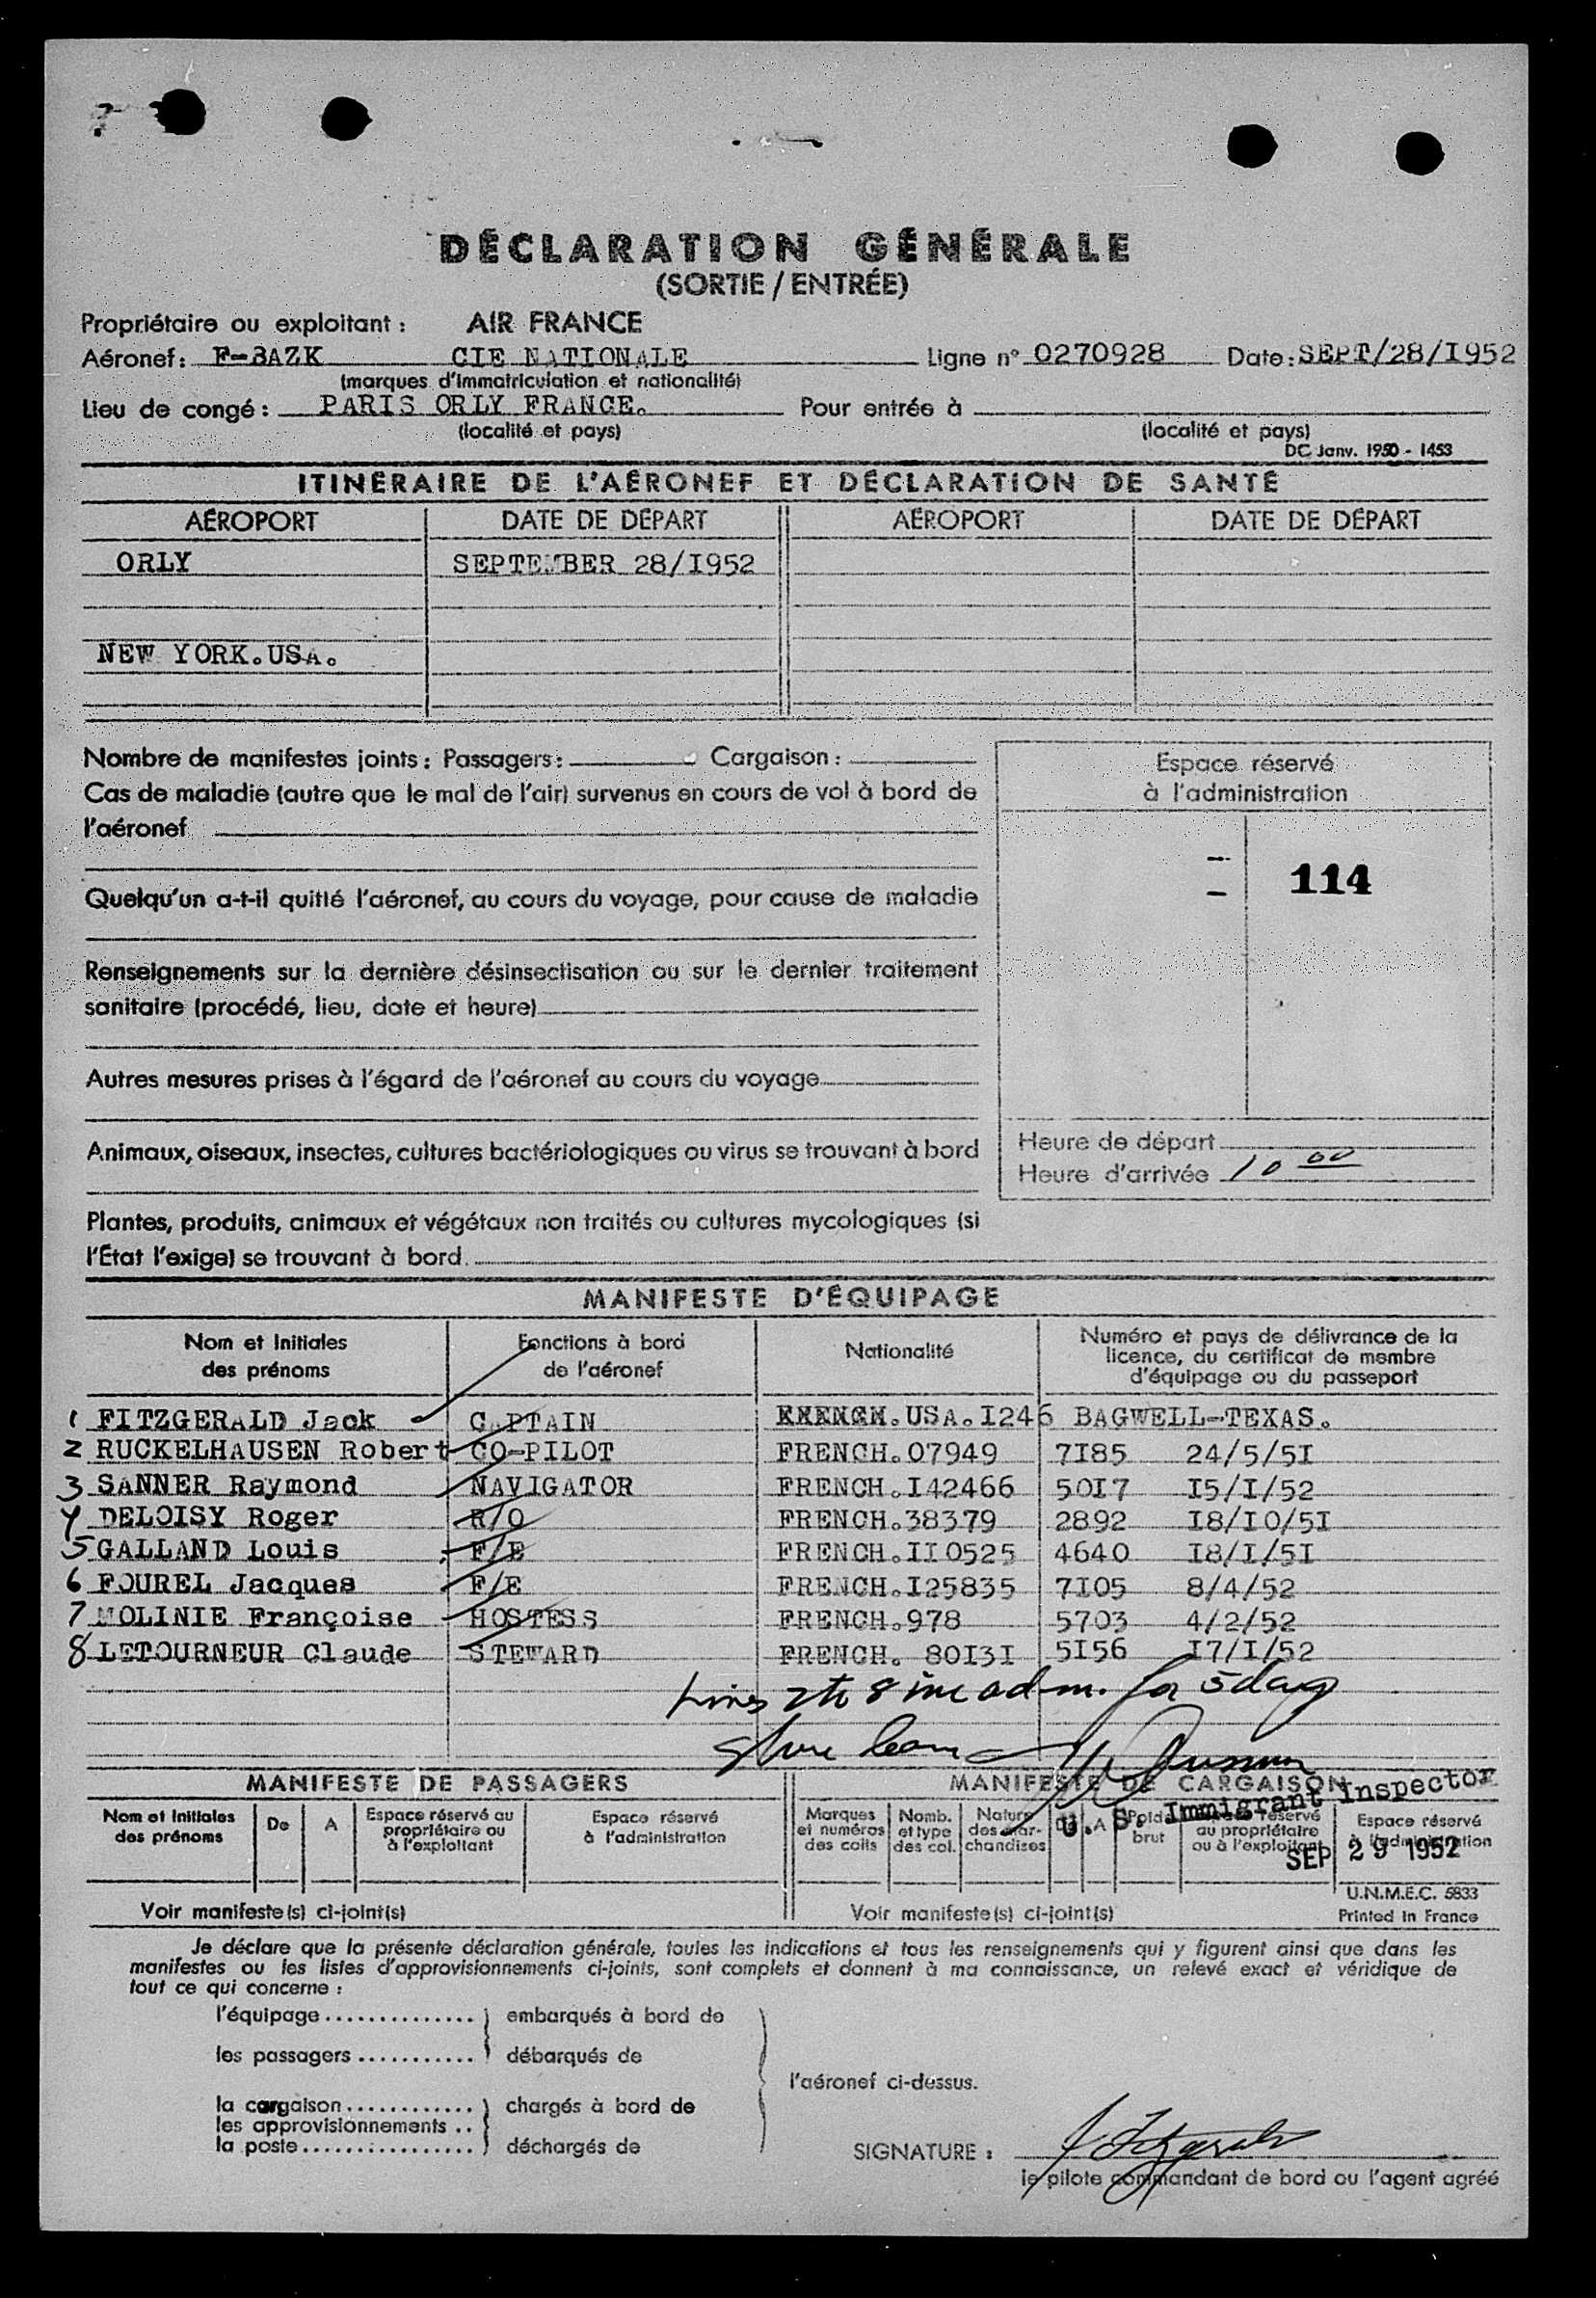 DÉCLARATION GÉNÉRALE
(SORTIE / ENTRÉE)
Propriétaire ou exploitant : AIR FRANCE
Aéronef : F-BAZK CIE NATIONALE Ligne n° 0270928 Date : SEPT/28/I952
(marques d'immatriculation et nationalité)
Lieu de congé : PARIS ORLY FRANCE. Pour entrée à
(localité et pays) (localité et pays)
DC Janv. 1950 - 1453
ITINÉRAIRE DE L'AÉRONEF ET DÉCLARATION DE SANTÉ
AÉROPORT DATE DE DÉPART AÉROPORT DATE DE DÉPART
ORLY SEPTEMBER 28/I952
NEW YORK.USA.
Nombre de manifestes joints : Passagers : Cargaison :
Espace réservé
à l'administration
Cas de maladie (autre que le mal de l'air) survenus en cours de vol à bord de
l'aéronef
114
Quelqu'un a-t-il quitté l'aéronef, au cours du voyage, pour cause de maladie
Renseignements sur la dernière désinsectisation ou sur le dernier traitement
sanitaire (procédé, lieu, date et heure)
Autres mesures prises à l'égard de l'aéronef au cours du voyage
Animaux, oiseaux, insectes, cultures bactériologiques ou virus se trouvant à bord
Heure de départ
Heure d'arrivée 10 00
Plantes, produits, animaux et végétaux non traités ou cultures mycologiques (si
l'État l'exige) se trouvant à bord.
MANIFESTE D'ÉQUIPAGE
Nom et Initiales des prénoms Fonctions à bord de l'aéronef Nationalité Numéro et pays de délivrance de la licence, du certificat de membre d'équipage ou du passeport
1 FITZGERALD Jack CAPTAIN FRENCH.USA.I246 BAGWELL-TEXAS.
2 RUCKELHAUSEN Robert CO-PILOT FRENCH.07949 7I85 24/5/5I
3 SANNER Raymond NAVIGATOR FRENCH.I42466 50I7 I5/I/52
4 DELOISY Roger R/O FRENCH.38379 2892 I8/I0/5I
5 GALLAND Louis F/E FRENCH.II0525 4640 I8/I/5I
6 FOUREL Jacques F/E FRENCH.I25835 7I05 8/4/52
7 MOLINIE Françoise HOSTESS FRENCH.978 5703 4/2/52
8 LETOURNEUR Claude STEWARD FRENCH. 80I3I 5I56 I7/I/52
Lines 2 to 8 inc adm. for 5 days
Shore leave
U. S. Immigrant Inspector
SEP 29 1952
MANIFESTE DE PASSAGERS MANIFESTE DE CARGAISON
Nom et Initiales des prénoms De A Espace réservé au propriétaire ou à l'exploitant Espace réservé à l'administration
Marques et numéros des colis Nomb. et type des col. Nature des mar- chandises De A Poids brut Espace réservé au propriétaire ou à l'exploitant Espace réservé à l'administration
U.N.M.E.C. 5833
Voir manifeste(s) ci-joint(s) Voir manifeste(s) ci-joint(s) Printed in France
Je déclare que la présente déclaration générale, toutes les indications et tous les renseignements qui y figurent ainsi que dans les
manifestes ou les listes d'approvisionnements ci-joints, sont complets et donnent à ma connaissance, un relevé exact et véridique de
tout ce qui concerne :
l'équipage .............. embarqués à bord de
les passagers ........... débarqués de
l'aéronef ci-dessus.
la cargaison ............ chargés à bord de
les approvisionnements ..
la poste ................ déchargés de
SIGNATURE : J Fitzgerald
le pilote commandant de bord ou l'agent agréé